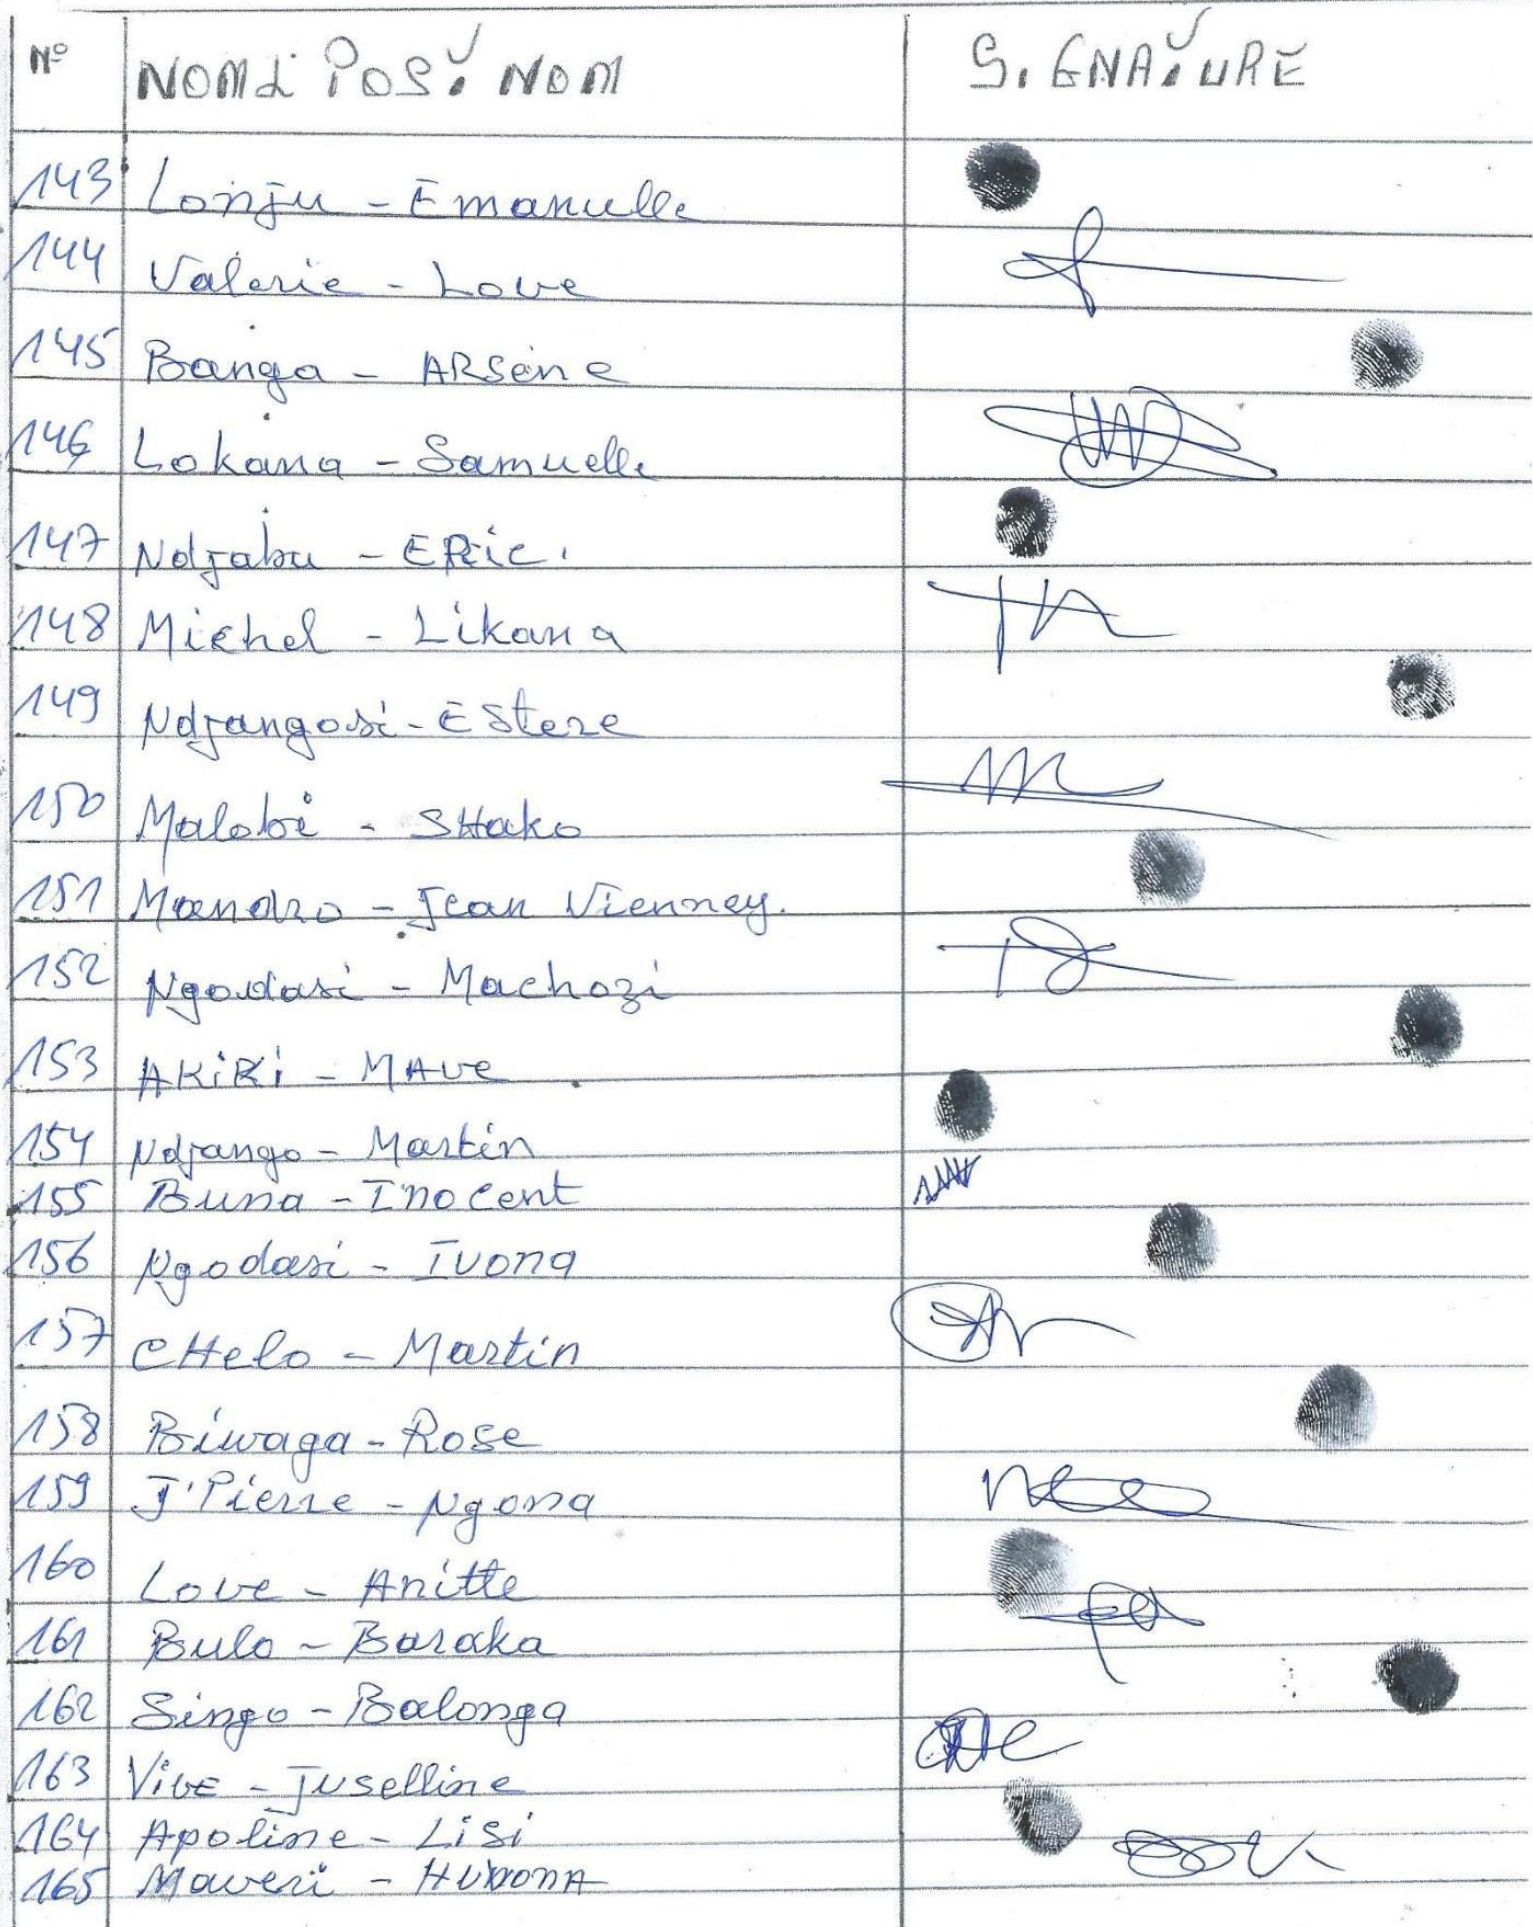 N° NOM & POST NOM SIGNATURE
143 Lonju - Emanuelle
144 Valerie - Love
145 Banga - ARSene
146 Lokana - Samuelle
147 Ndjabu - ERic.
148 Michel - Likana
149 Ndjangosi - EStere
150 Malobi - SHako
151 Mandro - Jean Vienney.
152 Ngodasi - Machozi
153 AKiRi - MAve
154 Ndjango - Martin
155 Buna - Inocent
156 Ngodasi - Ivona
157 CHelo - Martin
158 Biwaga - Rose
159 J'Pierre - Ngona
160 Love - Anitte
161 Bulo - Baraka
162 Singo - Balonga
163 ViVE - Juselline
164 Apoline - Lisi
165 Maveri -